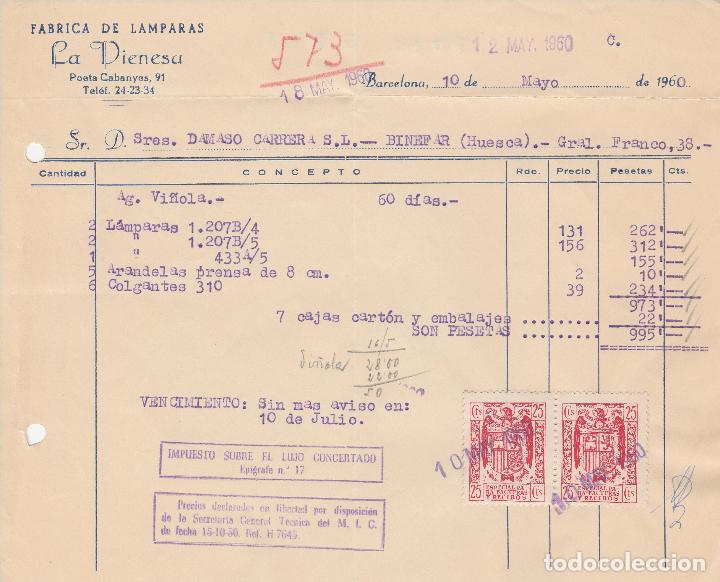 FABRICA DE LAMPARAS
La Vienesa
Poeta Cabanyes, 91
Teléf. 24-23-34
573
12 MAY. 1960 C.
18 MAY. 1960
Barcelona, 10 de Mayo de 1960
Sr. D. Sres. DAMASO CARRERA S.L.-- BINEFAR (Huesca).- Gral. Franco,38.-
Cantidad CONCEPTO Rdc. Precio Pesetas Cts.
Ag. Viñola.- 60 días.-
2 Lámparas 1.207B/4 131 262'-
2 " 1.207B/5 156 312'-
1 " 433A/5 155'-
5 Arandelas prensa de 8 cm. 2 10'-
6 Colgantes 310 39 234'-
973'-
7 cajas cartón y embalajes ...... 22'-
SON PESETAS ...... 995'-
16/5
Viñola 28'00
22'00
50
VENCIMIENTO: Sin mas aviso en:
10 de Julio.
IMPUESTO SOBRE EL LUJO CONCERTADO
Epígrafe n.° 17
Precios declarados en libertad por disposición
de la Secretaría General Técnica del M. I. C.
de fecha 15-10-50. Ref. H-7645.
Cts 25 25 Cts
ESPECIAL PA
RA FACTURAS
Y RECIBOS
25 Cts
Cts 25
ESPECIAL PA
RA FACTURAS
Y RECIBOS
25 Cts
10 MAY. 1960
10 MAY. 1960
todocoleccion